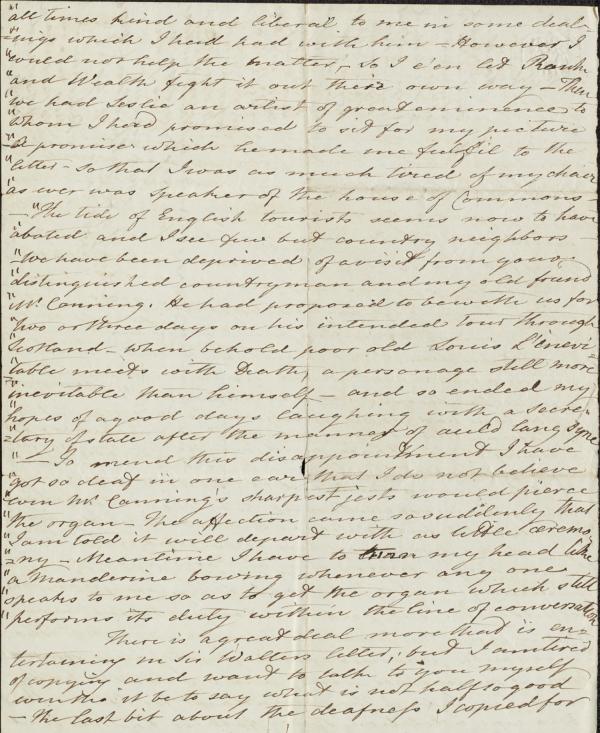 "all times kind and liberal to me in some deal-
"=ings which I had had with him – However I
"could not help the matter – So I e'en let Rank
"and Wealth fight it out their own way – Then
"we had Leslie an artist of great eminence to
"whom I had promised to sit for my picture
"– A promise which he made me fulfil to the
"letter – so that I was as much tired of my chair
"as ever was speaker of the house of Commons –
"– "The tide of English tourists seems now to have
"abated and I see few but country neighbors –
"– We have been deprived of a visit from your
"distinguished countryman and my old friend
"Mr. Canning. He had proposed to be with us for
"two or three days on his intended tour through
"Scotland – when behold poor old Louis L'inevi-
"table meets with Death, a personage still more
"inevitable than himself – and so ended my
"hopes of a good days laughing with a Secre-
"=tary of state after the manner of auld lang syne
"– "To mend this disappointment I have
"got so deaf in one ear that I do not believe
"even Mr. Canning's sharpest jests would pierce
"the organ – The affection came so suddenly that
"I am told it will depart with as little ceremo-
"=ny – Meantime I have to turn my head like
"a Mandarine bowing whenever any one
"speaks to me so as to get the organ which still
"performs its duty within the line of conversation
There is a great deal more that is en=
tertaining in Sir Walters letter, but I am tired
of copying and want to talk to you myself
even tho' it be to say what is not half so good
– The last bit about the deafness I copied for